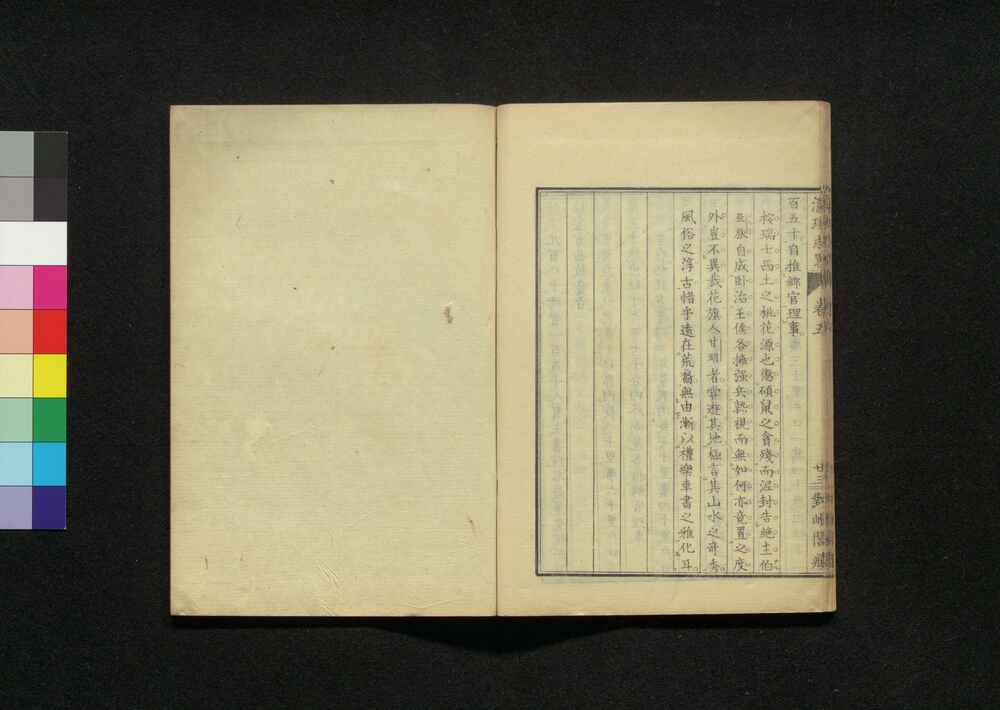 百五十自推歸官理事
桉瑞士西土之桃花源也懲碩鼠之貪殘而泥封告絕主伯
亞旅自成卧治王侯各擁强兵熟視而無如何亦竟置之度
外豈不異哉花旗人甘明者嘗遊其地極言其山水之奇秀
風俗之淳古惜乎遠在荒裔無由漸以禮樂車書之雅化耳
卷五
廿三